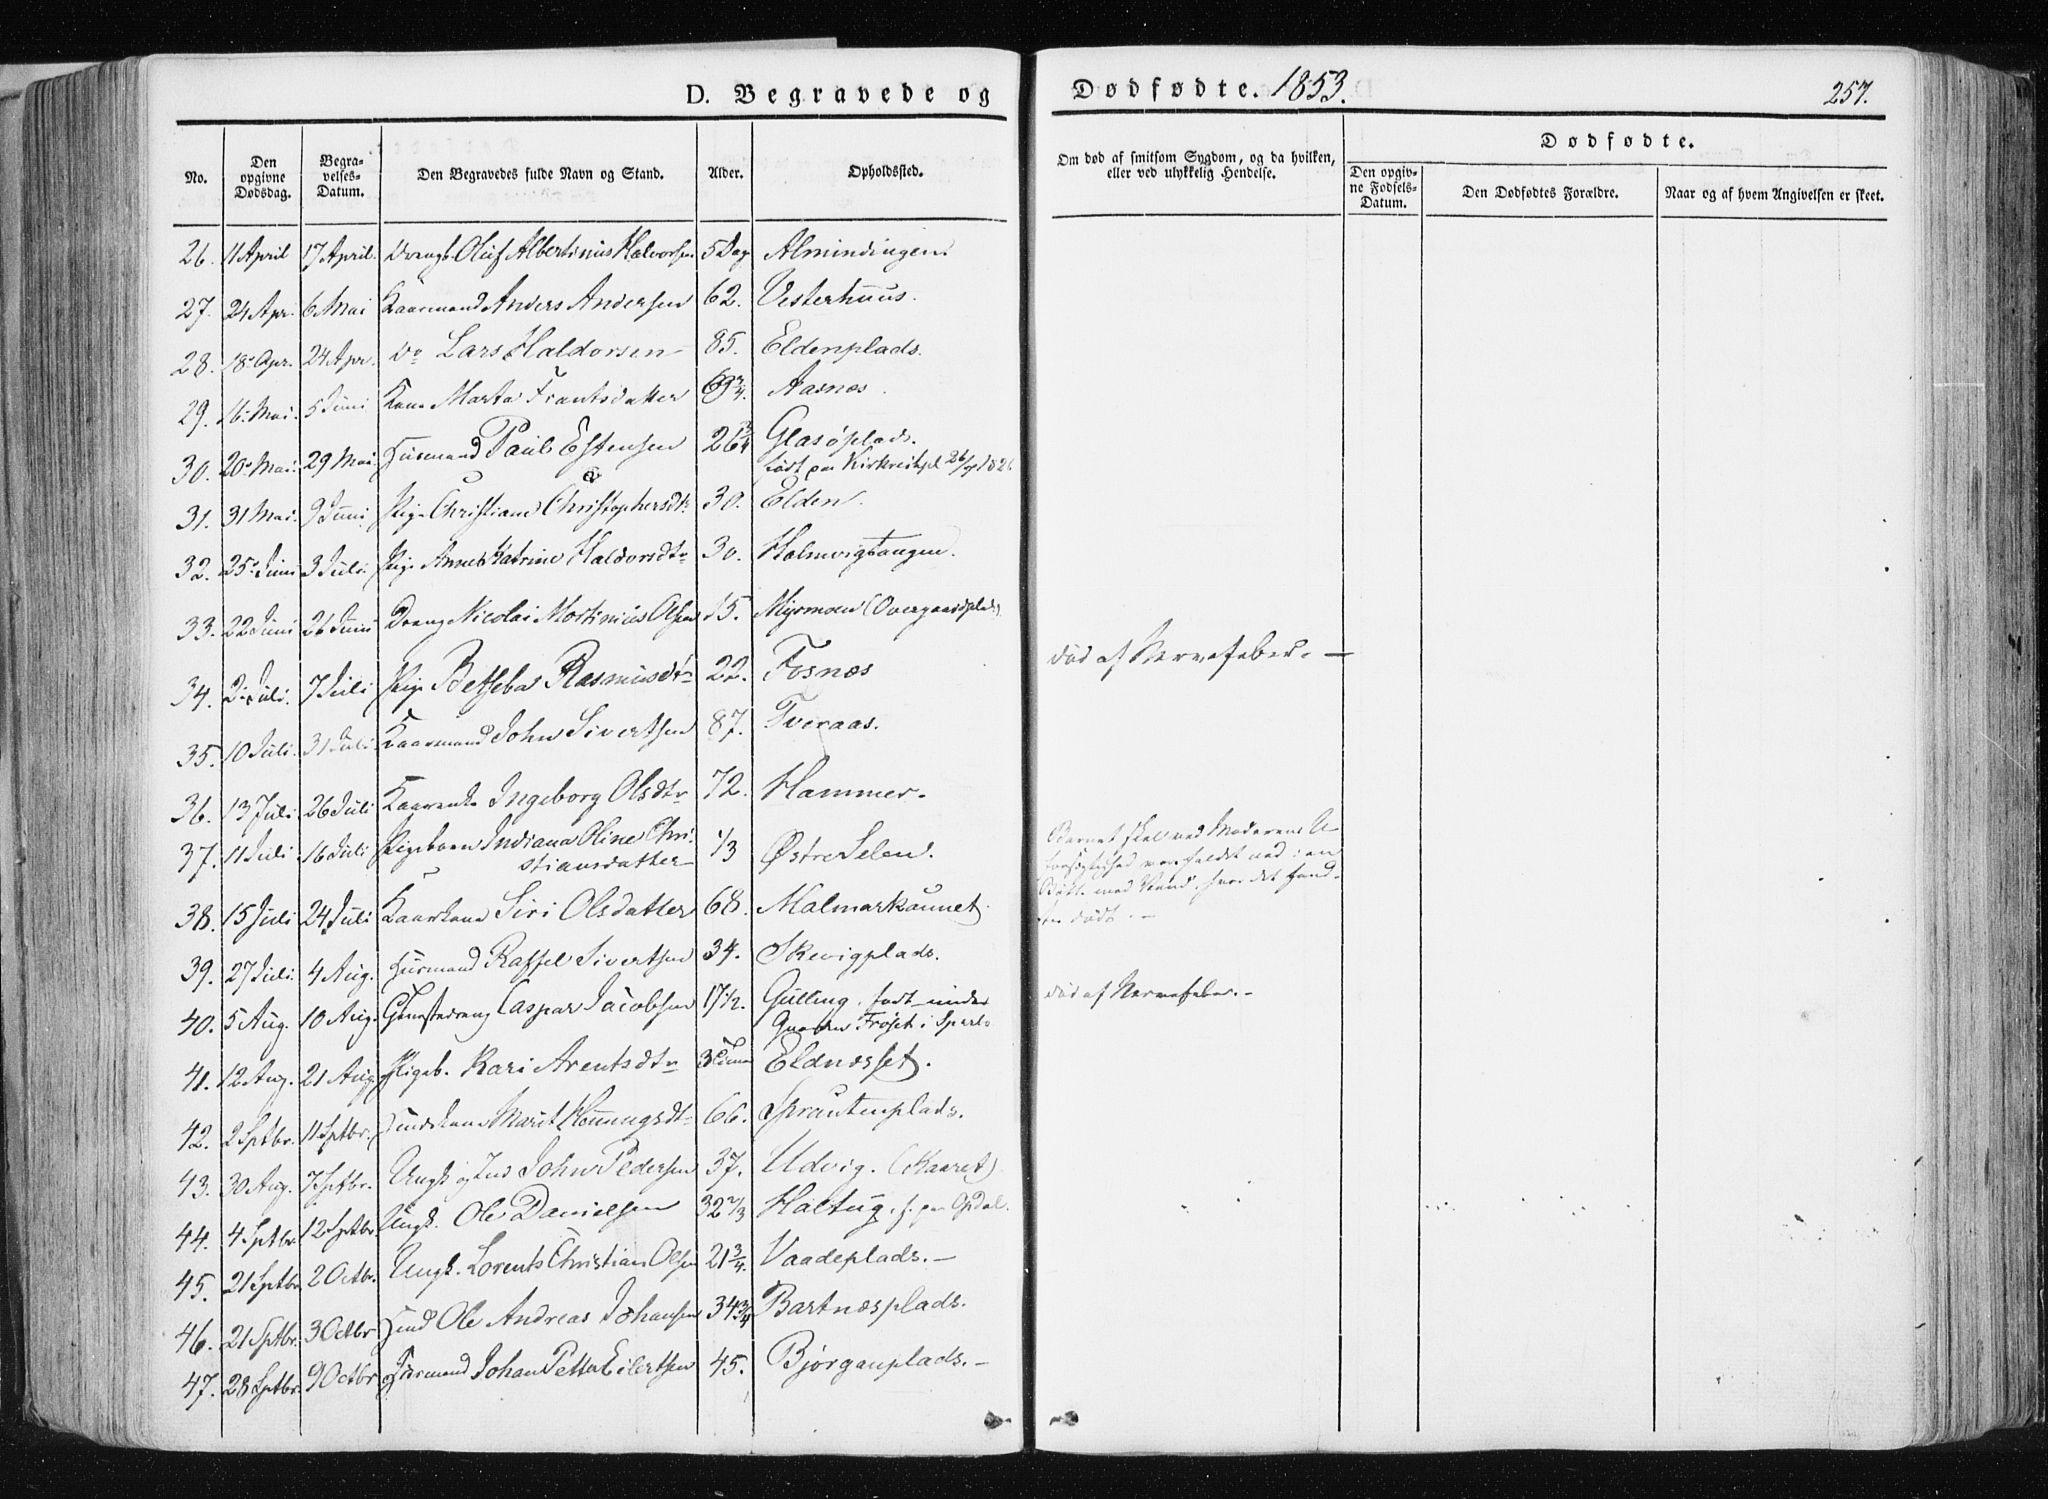 D. Begravede og
Dødfødte. 1853.
257.
No.
Den opgivne Dødsdag.
Begravelses-Datum.
Den Begravedes fulde Navn og Stand.
Alder.
Opholdssted.
Om død af smitsom Sygdom, og da hvilken, eller ved ulykkelig Hendelse.
Dødfødte.
Den opgivne Fødsels-Datum.
Den Dødfødtes Forældre.
Naar og af hvem Angivelsen er skeet.
26. 11 April 17 April. Drengb. Oluf Albertinus Halvorsen 5 Dag Almindingen.
27. 24 Apr. 6 Mai Kaarmand Anders Andersen 62. Vesterhuus.
28. 18 Apr. 24 Apr. do Lars Haldorsen 85. Eldenplads.
29. 16 Mai. 5 Juni Kone Marta Frantsdatter 69 3/4. Aasnes.
30. 20 Mai. 29 Mai Huusmand Paul Estensen 26 3/4 Glasøplads.
født paa
31. 31 Mai. 9 Juni. Pige Christiane Christophersdtr. 30. Elden.
32. 25 Juni 3 Juli. Pige Anne Katrine Haldorsdtr 30. Holmvigtangen.
33. 22 Juni 26 Juni Dreng Nicolai Mortinius Olsen 15. Myrmoen (Overgaardplads)
34. 2 Juli. 7 Juli Pige Betseba Rasmusdtr 22. Fosnæs død af Nervefeber. —
35. 10 Juli. 31 Juli. Kaarmand John Sivertsen 87. Tveraas.
36. 13 Juli. 26 Juli Kaarenke Ingeborg Olsdtr 72. Hammer.
37. 11 Juli 16 Juli Pigebarn Indiana Oline Chri- 1/3 Østre Selen.
stiansdatter
Barnet skal ved Moderens U-
forsigtighed være faldet ned i en
Bøtte med Vand, hvor det fand-
tes dødt. —
38. 15 Juli 24 Juli Kaarkone Siri Olsdatter 68. Malmarkaunet.
39. 27 Juli. 4 Aug. Huusmand Rassel Sivertsen 34. Skevigplads.
40. 5 Aug. 10 Aug. Tjenestedreng Caspar Jacobsen 17 1/2. Gulling. født under
Gaarden Frøset i Sparb.
død af Nervefeber. —
41. 12 Aug. 21 Aug. Pigeb. Kari Arentsdtr Eldnæsset.
42. 2 Sptbr. 11 Sptbr. Indskone Marit Henningsdtr 66. Sprautenplads.
43. 30 Aug. 7 Sptbr. Ungk. og Ind John Pedersen 37. Udvig. (Kaaret)
44. 4 Sptbr. 12 Sptbr. Ungk. Ole Danielsen 32 2/3 Haltug. f. paa
45. 21 Sptbr. 2 Octbr. Ungk. Lorents Christian Olsen 21 3/4. Vaadeplads. —
46. 21 Sptbr. 3 Octbr Ind Ole Andreas Johansen 34 3/4 Bartnæsplads.
47. 28 Sptbr. 9 Octbr Huusmand Johan Petter Eilertsen 45. Bjørganplads. —